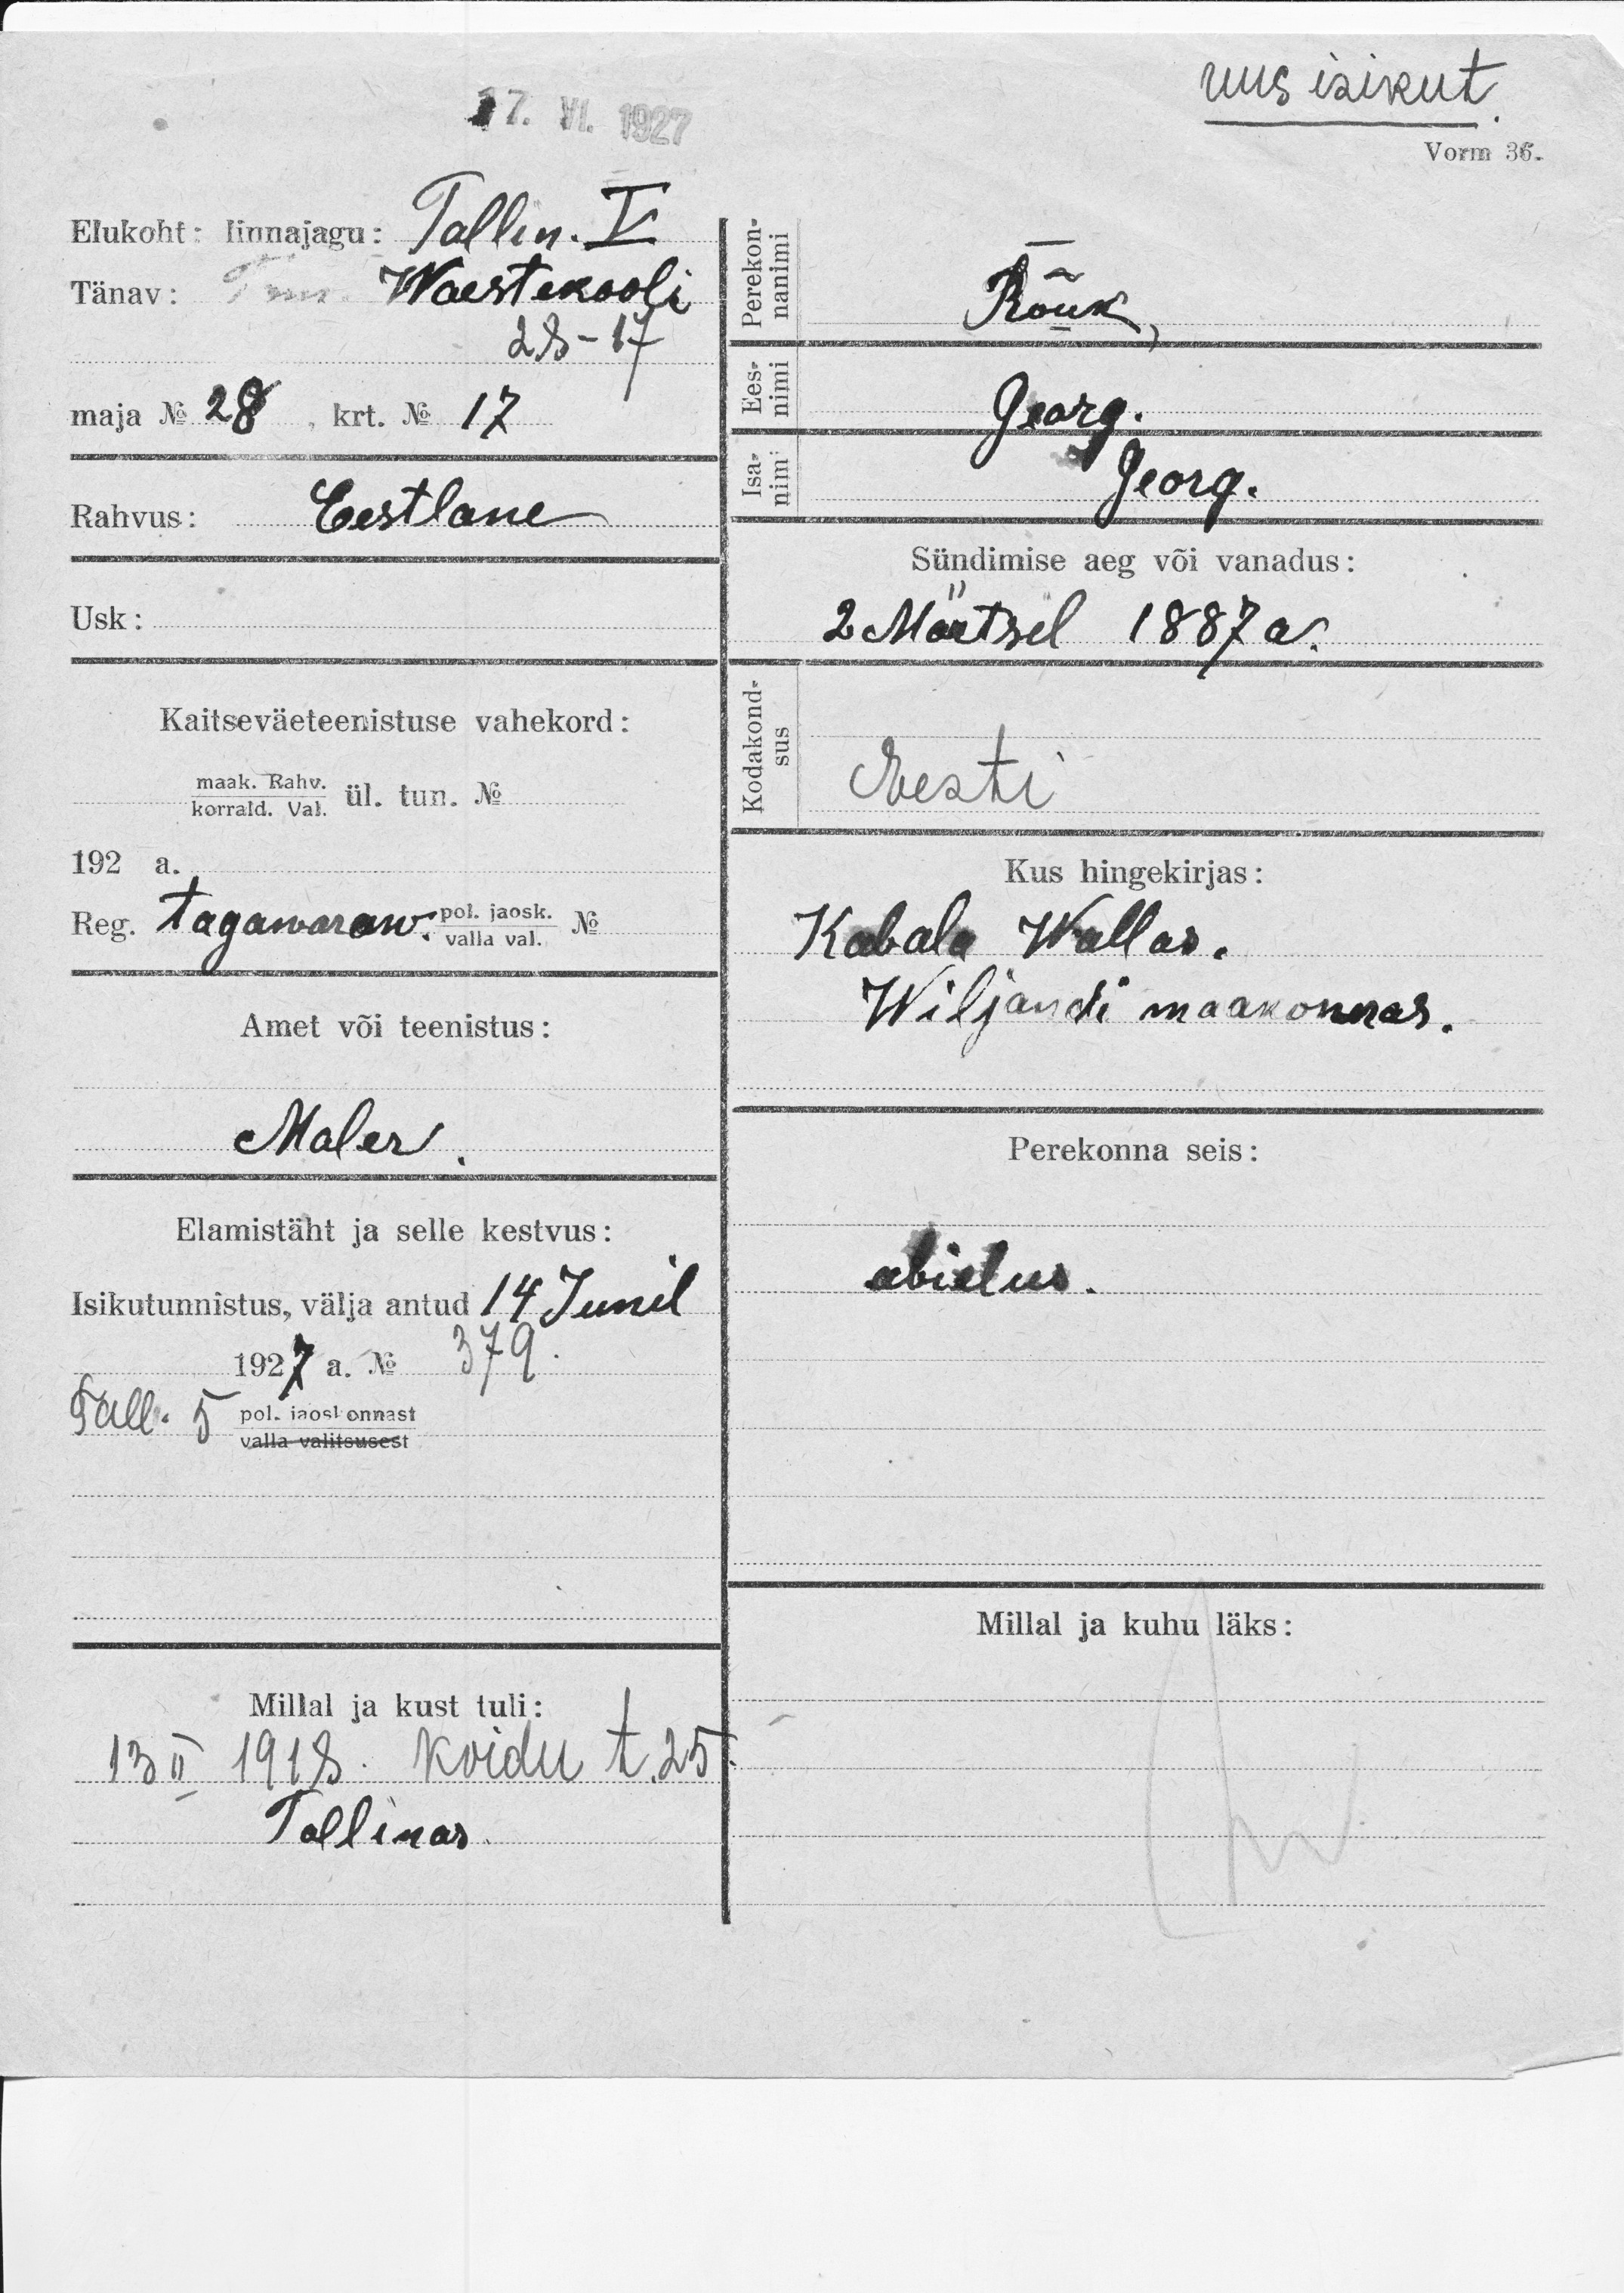 17. VI. 1927
uus isikut.
Vorm 36.
Elukoht: linnajagu: Tallin. V
Tänav: Waestekooli
28-17
maja № 28, krt. № 17
Rahvus: Eestlane
Usk:
Kaitseväeteenistuse vahekord:
maak. Rahv.
korrald. Val. ül. tun. №
192 a.
Reg. tagawaraw. pol. jaosk.
valla val. №
Amet või teenistus:
Maler.
Elamistäht ja selle kestvus:
Isikutunnistus, välja antud 14 Junil
1927 a. № 379.
Tall. 5 pol. jaoskonnast
valla valitsusest
Millal ja kust tuli:
13 II 1918. Koidu t. 25.
Tallinas
Perekon-
nanimi
Rõuk,
Ees-
nimi
Georg.
Isa-
nimi
Georg.
Sündimise aeg või vanadus:
2 Märtsil 1887 a.
Kodakond-
sus
Eesti
Kus hingekirjas:
Kabala Wallas.
Wiljandi maakonnas.
Perekonna seis:
abielus.
Millal ja kuhu läks: